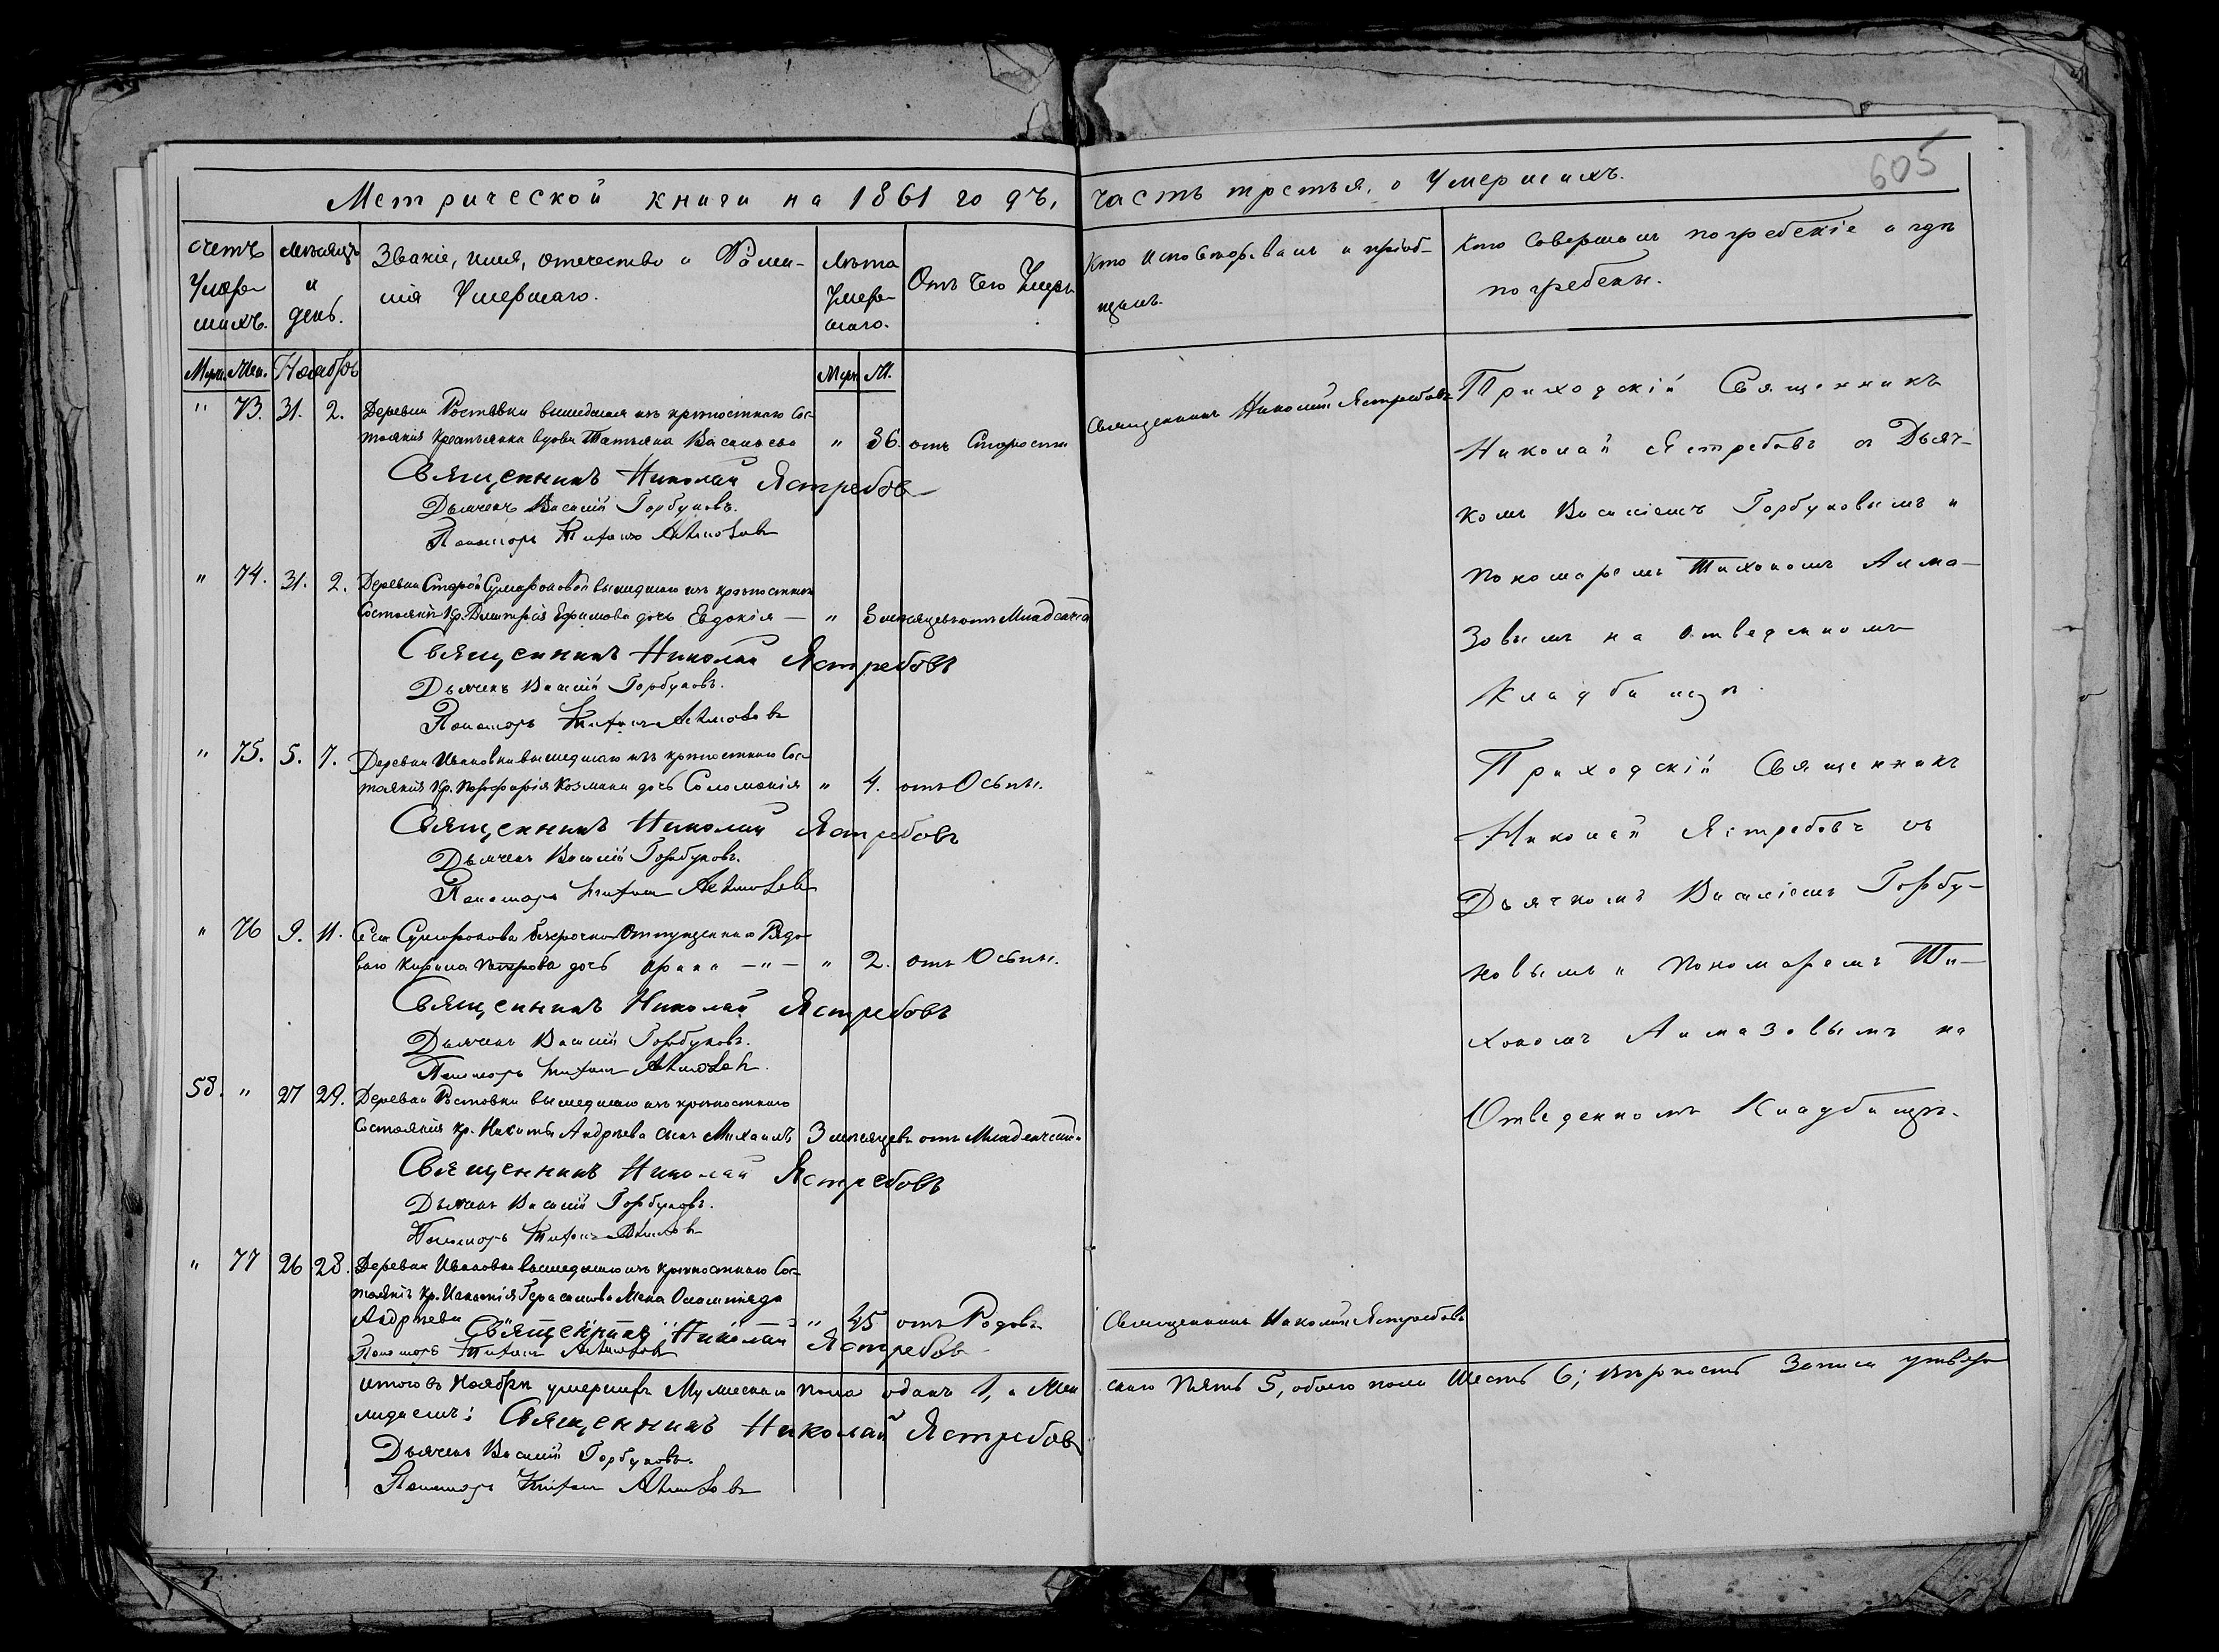 605
Метрической книги на 1861 годъ, часть третья, о Умершихъ.
Счетъ Умер- шихъ.
Мѣсяцъ и день.
Званіе, имя, отечество и Фами-
лія Умершаго.
Лѣта Умер- шаго.
Отъ чего Умеръ
Кто Исповѣдывалъ и пріоб-
щалъ.
Кто Совершалъ погребеніе и гдѣ
погребены.
Муж. Жен. Ноябрь Муж. Ж.
" 73. 31. 2. Деревни Ростовки вышедшая изъ крѣпостнаго Сос-
тоянія Крестьянка вдова Татьяна Васильева " 86. отъ Старости
Священникъ Николай Ястребовъ
Священникъ Николай Ястребовъ
Дьячекъ Василій Горбуновъ.
Пономарь Тихонъ Алмазовъ
" 74. 31. 2. Деревни Старой Сумароковой вышедшаго изъ крѣпостнаго
Состоянія Кр. Дмитрія Ефимова дочь Евдокія — " 3 мѣсяцевъ отъ Младенчества
Священникъ Николай Ястребовъ
Дьячекъ Василій Горбуновъ.
Пономарь Тихонъ Алмазовъ
" 75. 5. 7. Деревни Ивановки вышедшаго изъ крѣпостнаго Сос-
тоянія Кр. Порфирія Козмина дочь Соломонія " 4. отъ Оспы.
Священникъ Николай Ястребовъ
Дьячекъ Василій Горбуновъ.
Пономарь Тихонъ Алмазовъ
" 76 9. 11. Села Сумарокова безсрочно Отпущеннаго Рядо-
ваго Кирила Петрова дочь Ирина —"— " 2. отъ Оспы.
Священникъ Николай Ястребовъ
Дьячекъ Василій Горбуновъ.
Пономарь Тихонъ Алмазовъ.
58. " 27 29. Деревни Ростовки вышедшаго изъ крѣпостнаго
Состоянія Кр. Никиты Андрѣева сынъ Михаилъ 3 мѣсяцевъ отъ Младенчества
Священникъ Николай Ястребовъ
Дьячекъ Василій Горбуновъ.
Пономарь Тихонъ Алмазовъ
" 77 26 28. Деревни Ивановки вышедшаго изъ крѣпостнаго Сос-
тоянія Кр. Игнатія Герасимова Жена Олимпіяда
Андрѣева " 45 отъ Родовъ Священникъ Николай Ястребовъ
Священникъ Николай Ястребовъ
Пономарь Тихонъ Алмазовъ
Приходскій Священникъ
Николай Ястребовъ съ Дьяч-
комъ Василіемъ Горбуновымъ и
Пономаремъ Тихономъ Алма-
зовымъ на отведенномъ
Кладбищѣ.
Приходскій Священникъ
Николай Ястребовъ съ
Дьячкомъ Василіемъ Горбу-
новымъ и Пономаремъ Ти-
хономъ Алмазовымъ на
Отведенномъ Кладбищѣ.
Итого въ Ноябрѣ умершихъ Мужескаго пола одинъ 1, а Жен скаго Пять 5, обоего пола Шесть 6; вѣрность Записи утвер
ждаемъ: Священникъ Николай Ястребовъ
Дьячекъ Василій Горбуновъ.
Пономарь Тихонъ Алмазовъ